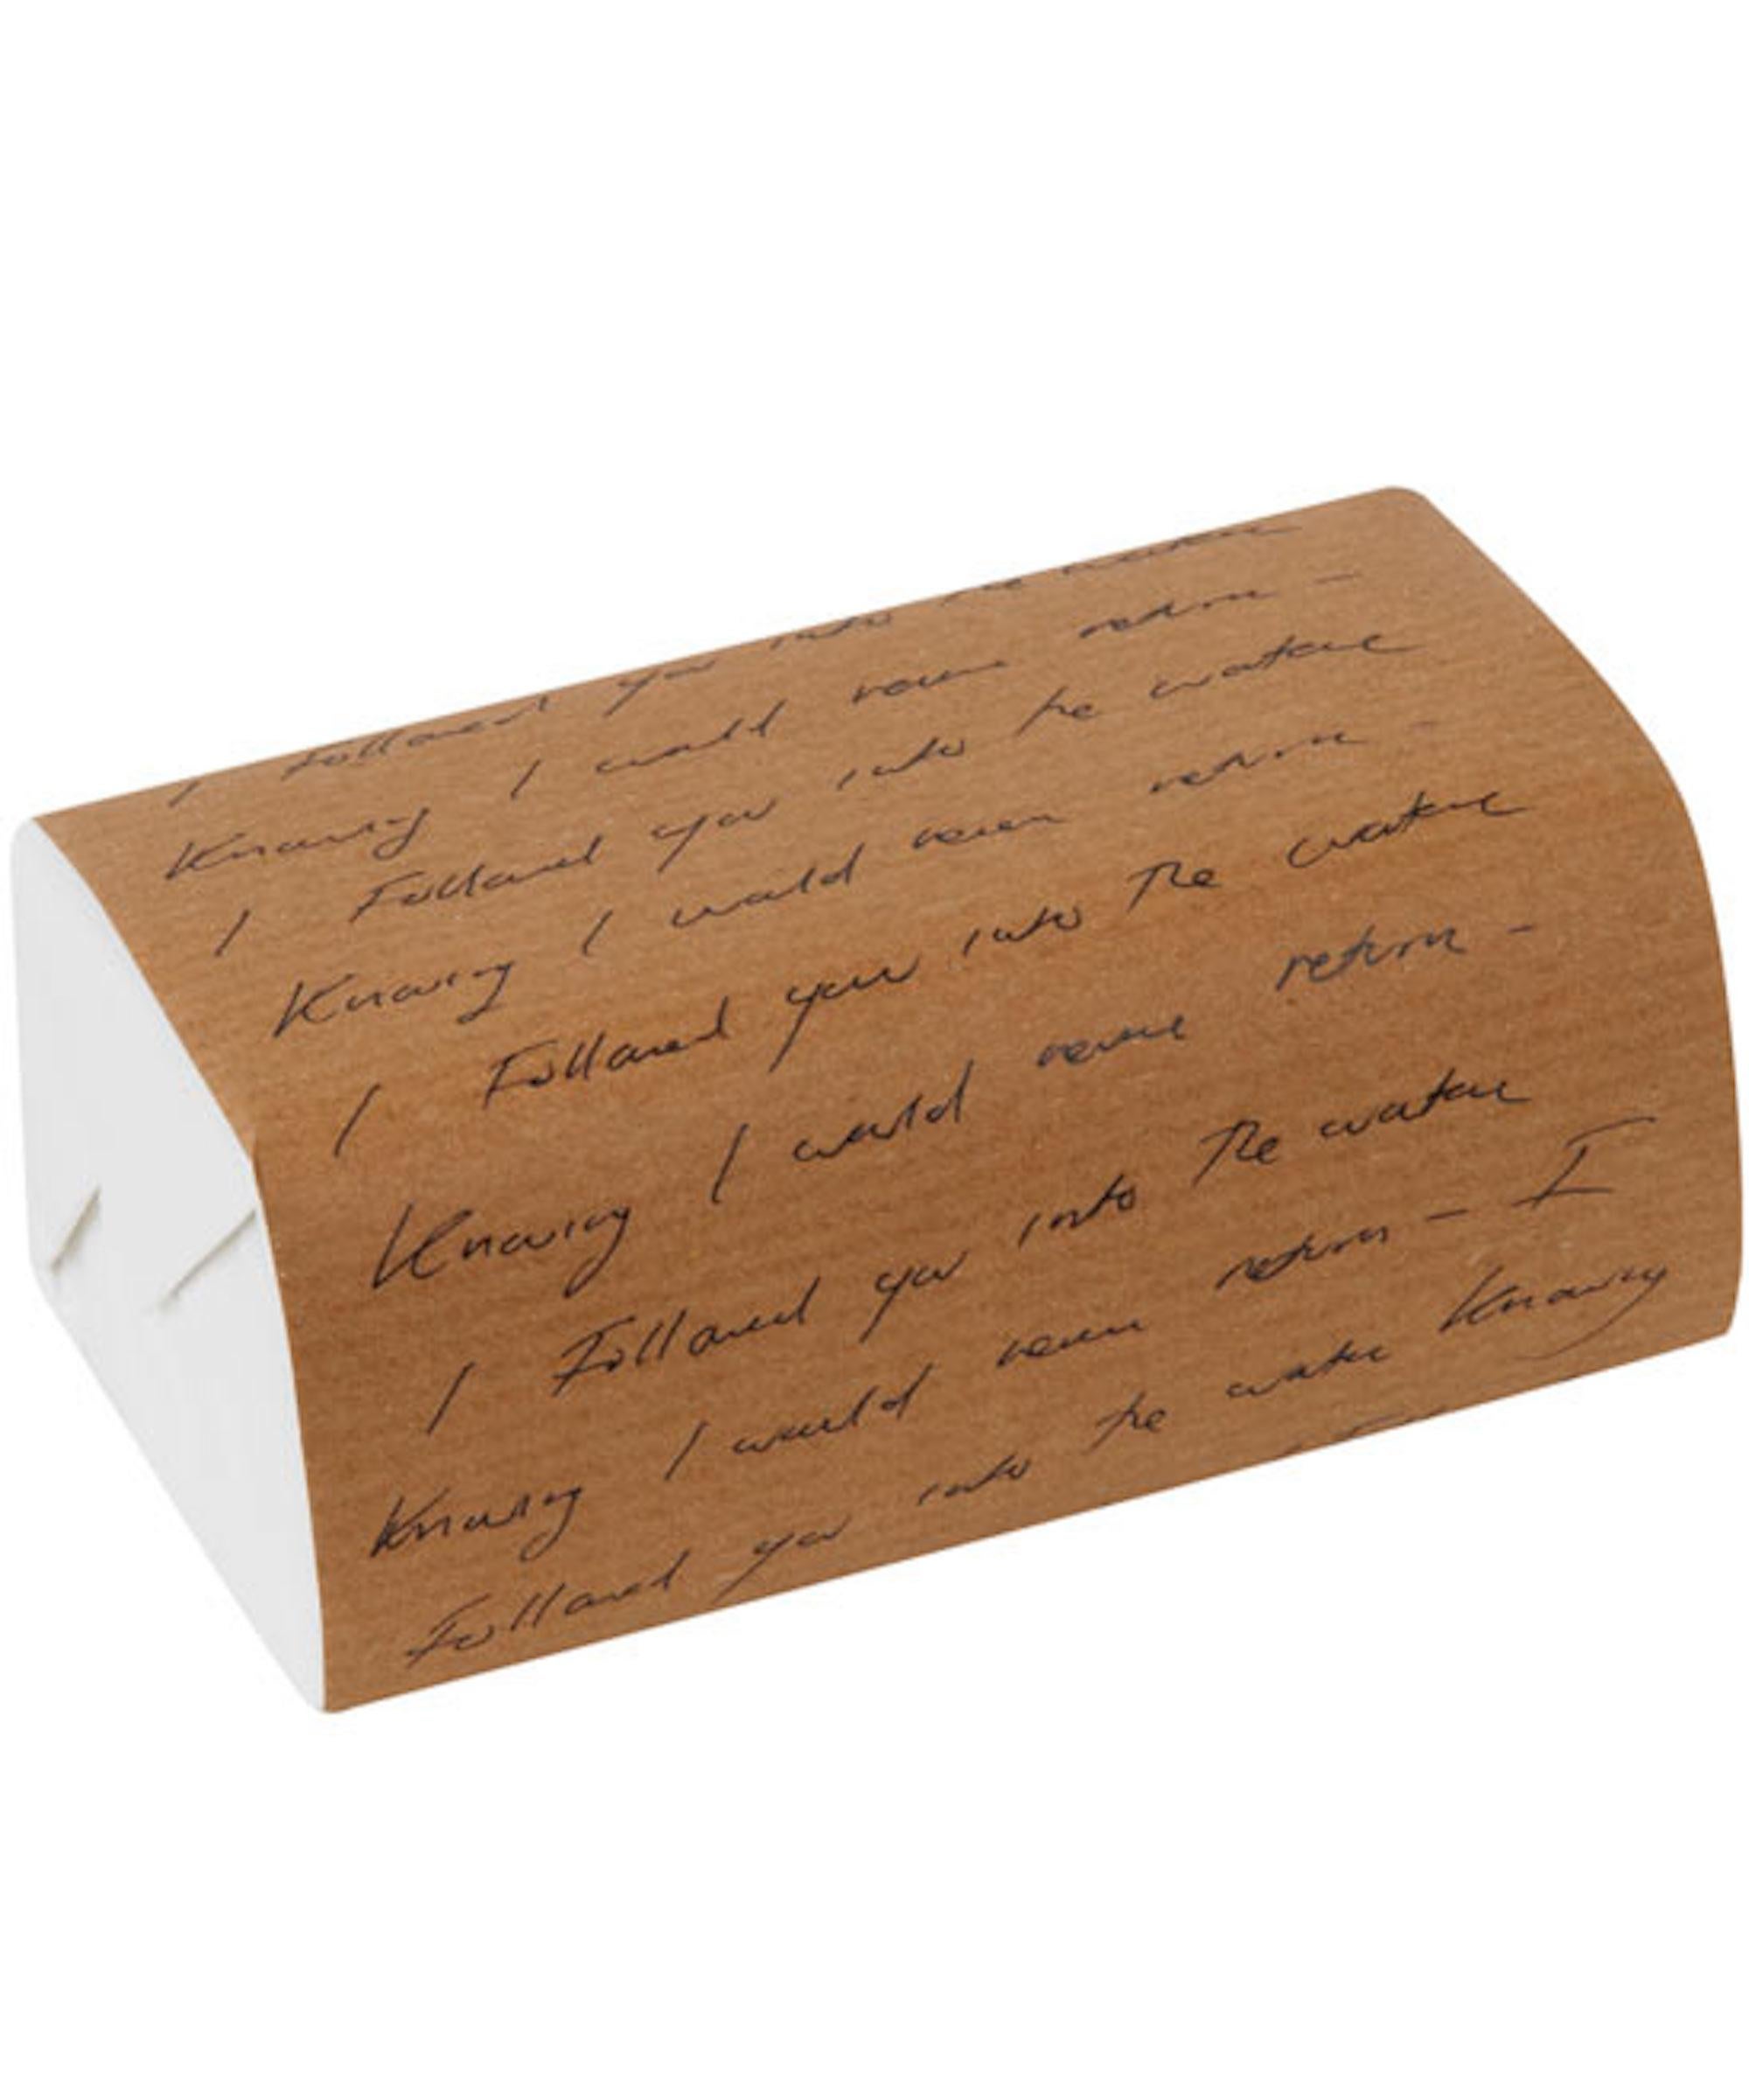 I Followed you into the water
Knowing I would never return -
I Followed you into the water
Knowing I would never return -
I Followed you into the water
Knowing I would never return -
I Followed you into the water
Knowing I would never return - I
Followed you into the water Knowing